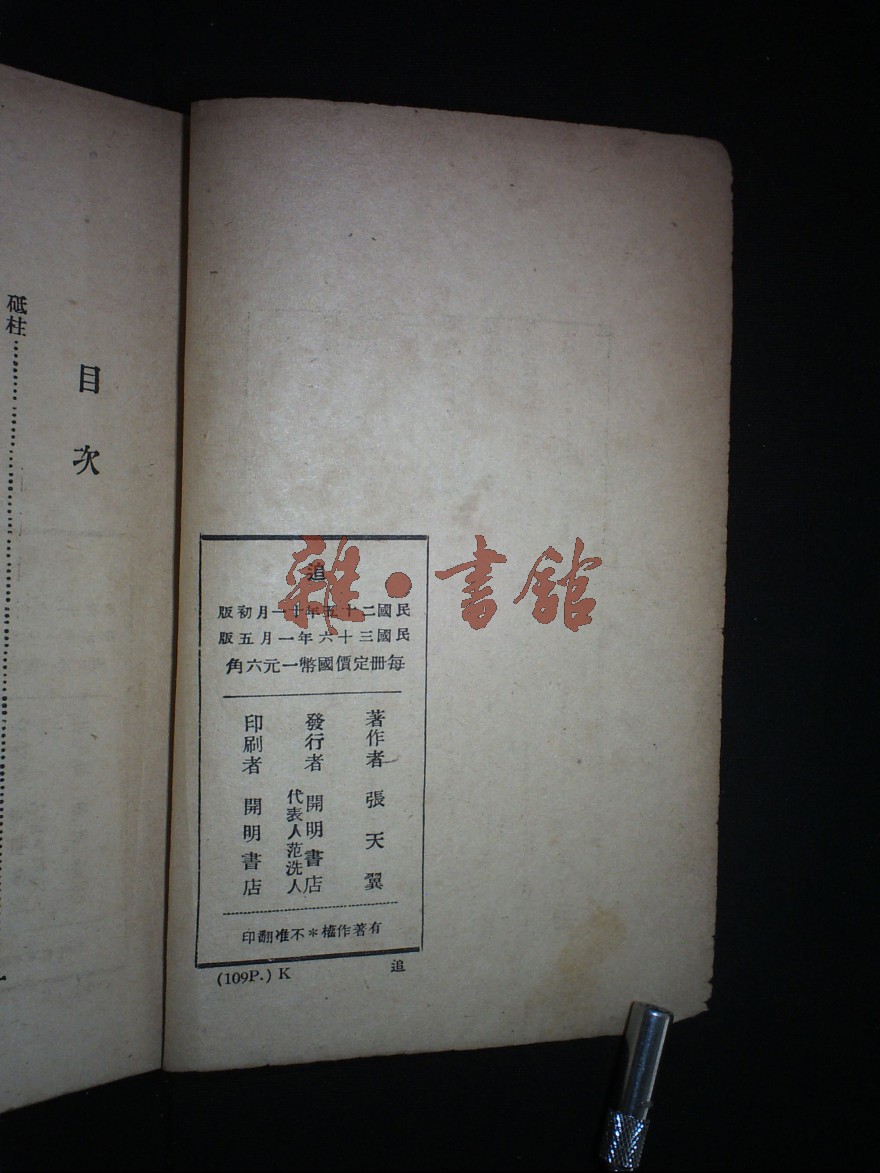 追
民國二十五年十一月初版
民國三十六年一月五版
每冊定價國幣一元六角
著作者 張天翼
發行者 開明書店
代表人范洗人
印刷者 開明書店
有著作權*不准翻印
(109P.) K
追
目次
砥柱
雜·書館